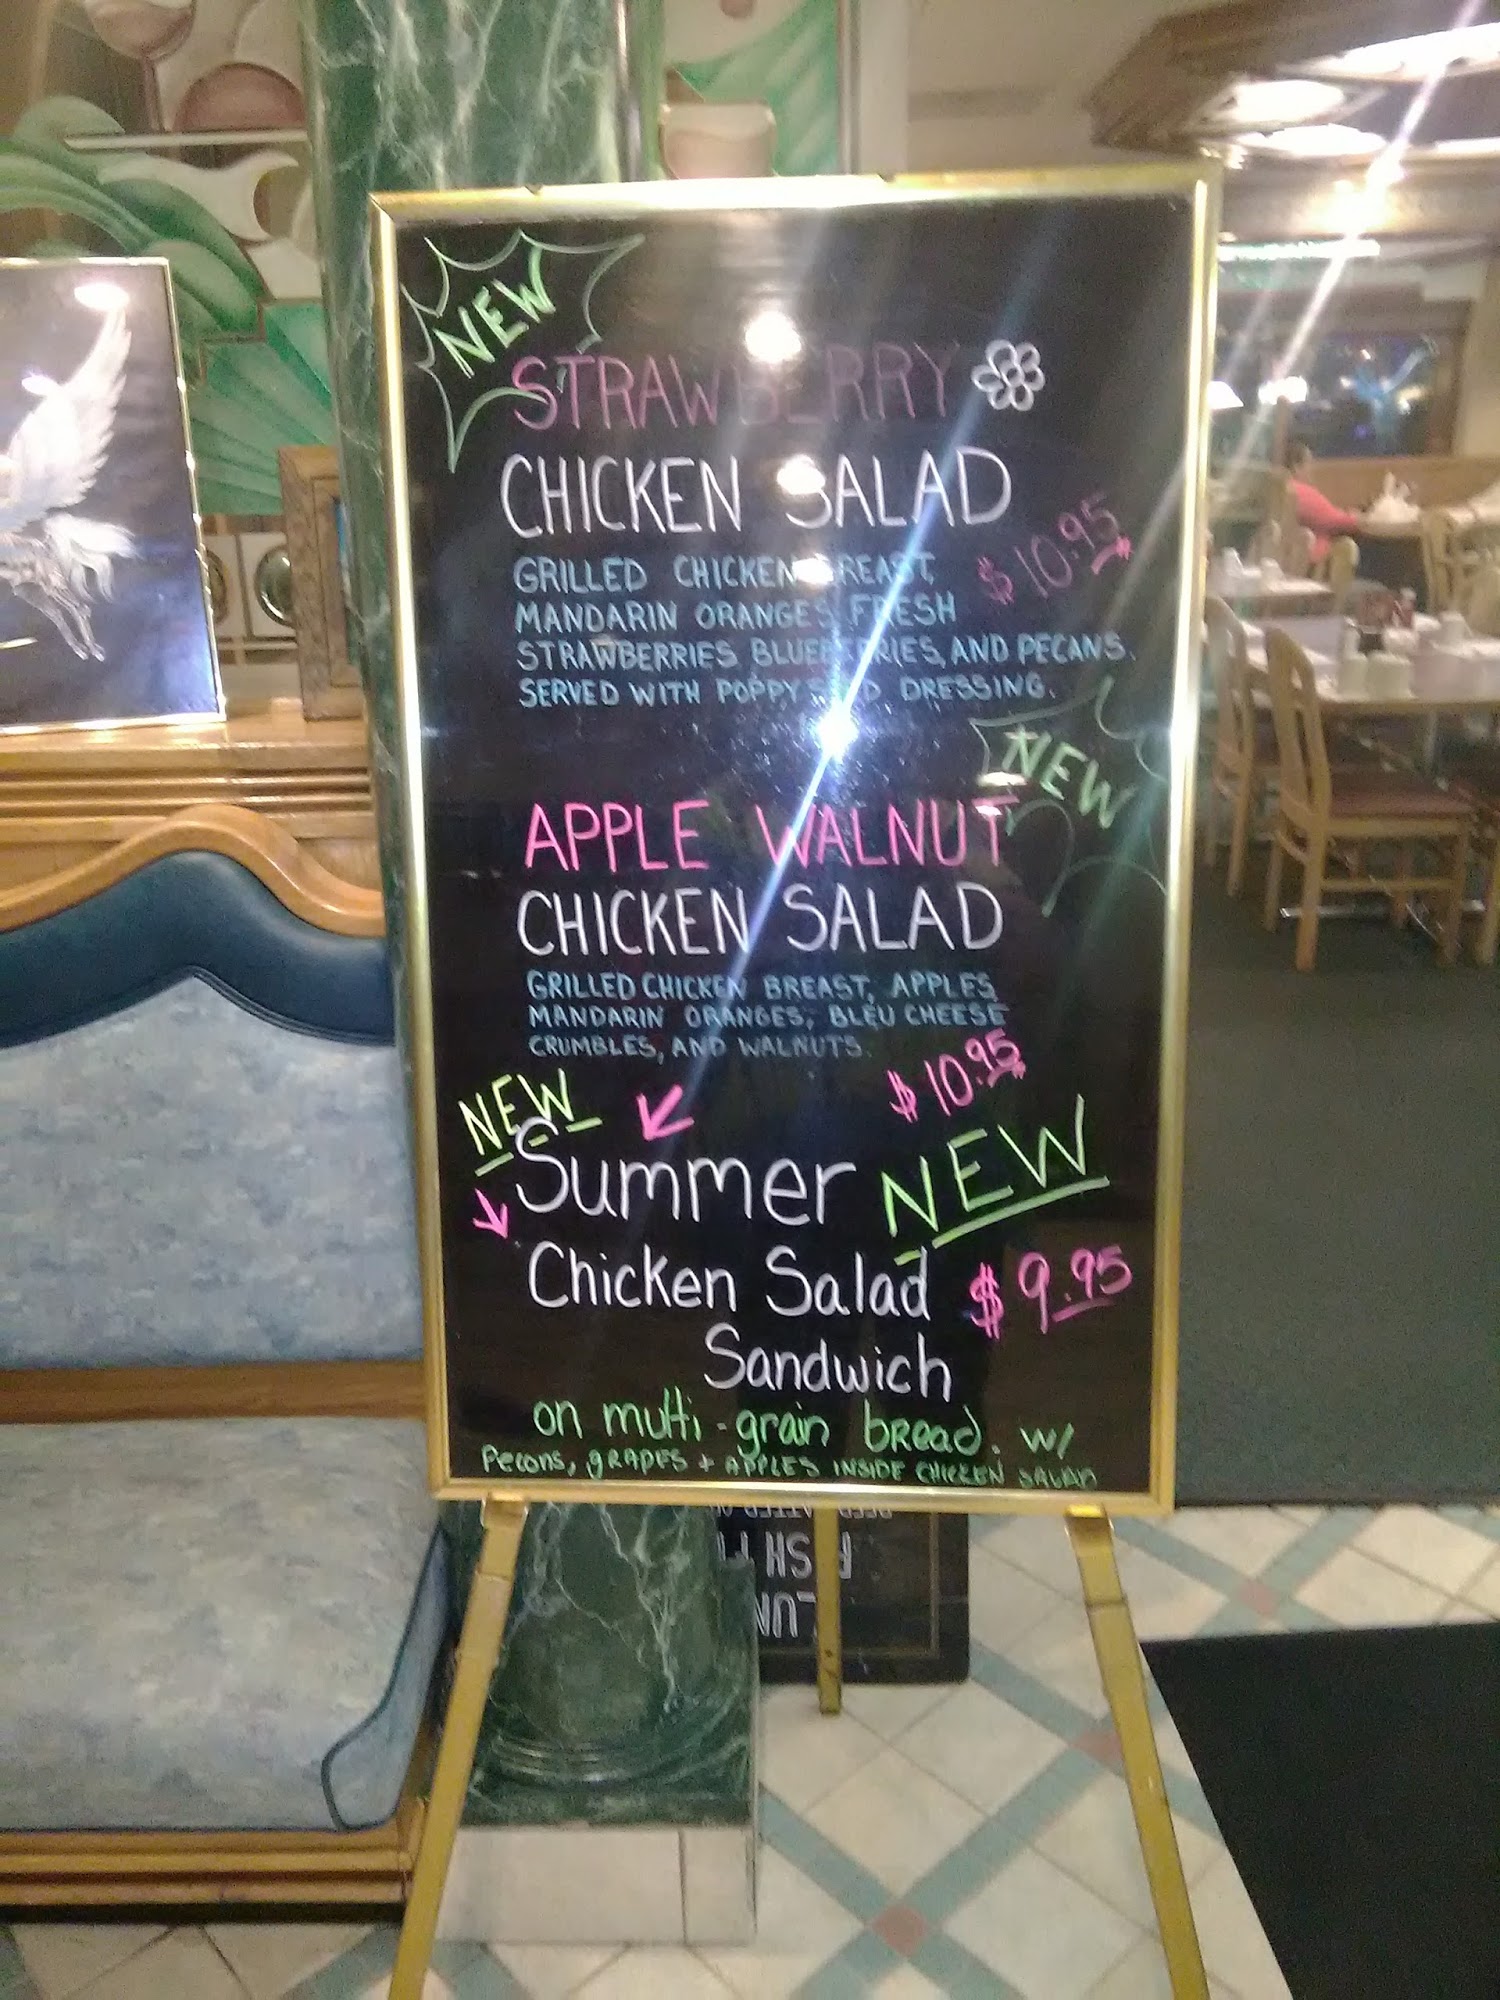 NEW
STRAWBERRY
CHICKEN SALAD
$10.95
GRILLED CHICKEN BREAST,
MANDARIN ORANGES, FRESH
STRAWBERRIES BLUEBERRIES, AND PECANS.
SERVED WITH POPPYSEED DRESSING.
NEW
APPLE WALNUT
CHICKEN SALAD
GRILLED CHICKEN BREAST, APPLES
MANDARIN ORANGES, BLEU CHEESE
CRUMBLES, AND WALNUTS.
$10.95
NEW
Summer NEW
Chicken Salad $9.95
Sandwich
on multi-grain bread. w/
Pecans, GRAPES + APPLES INSIDE CHICKEN SALAD